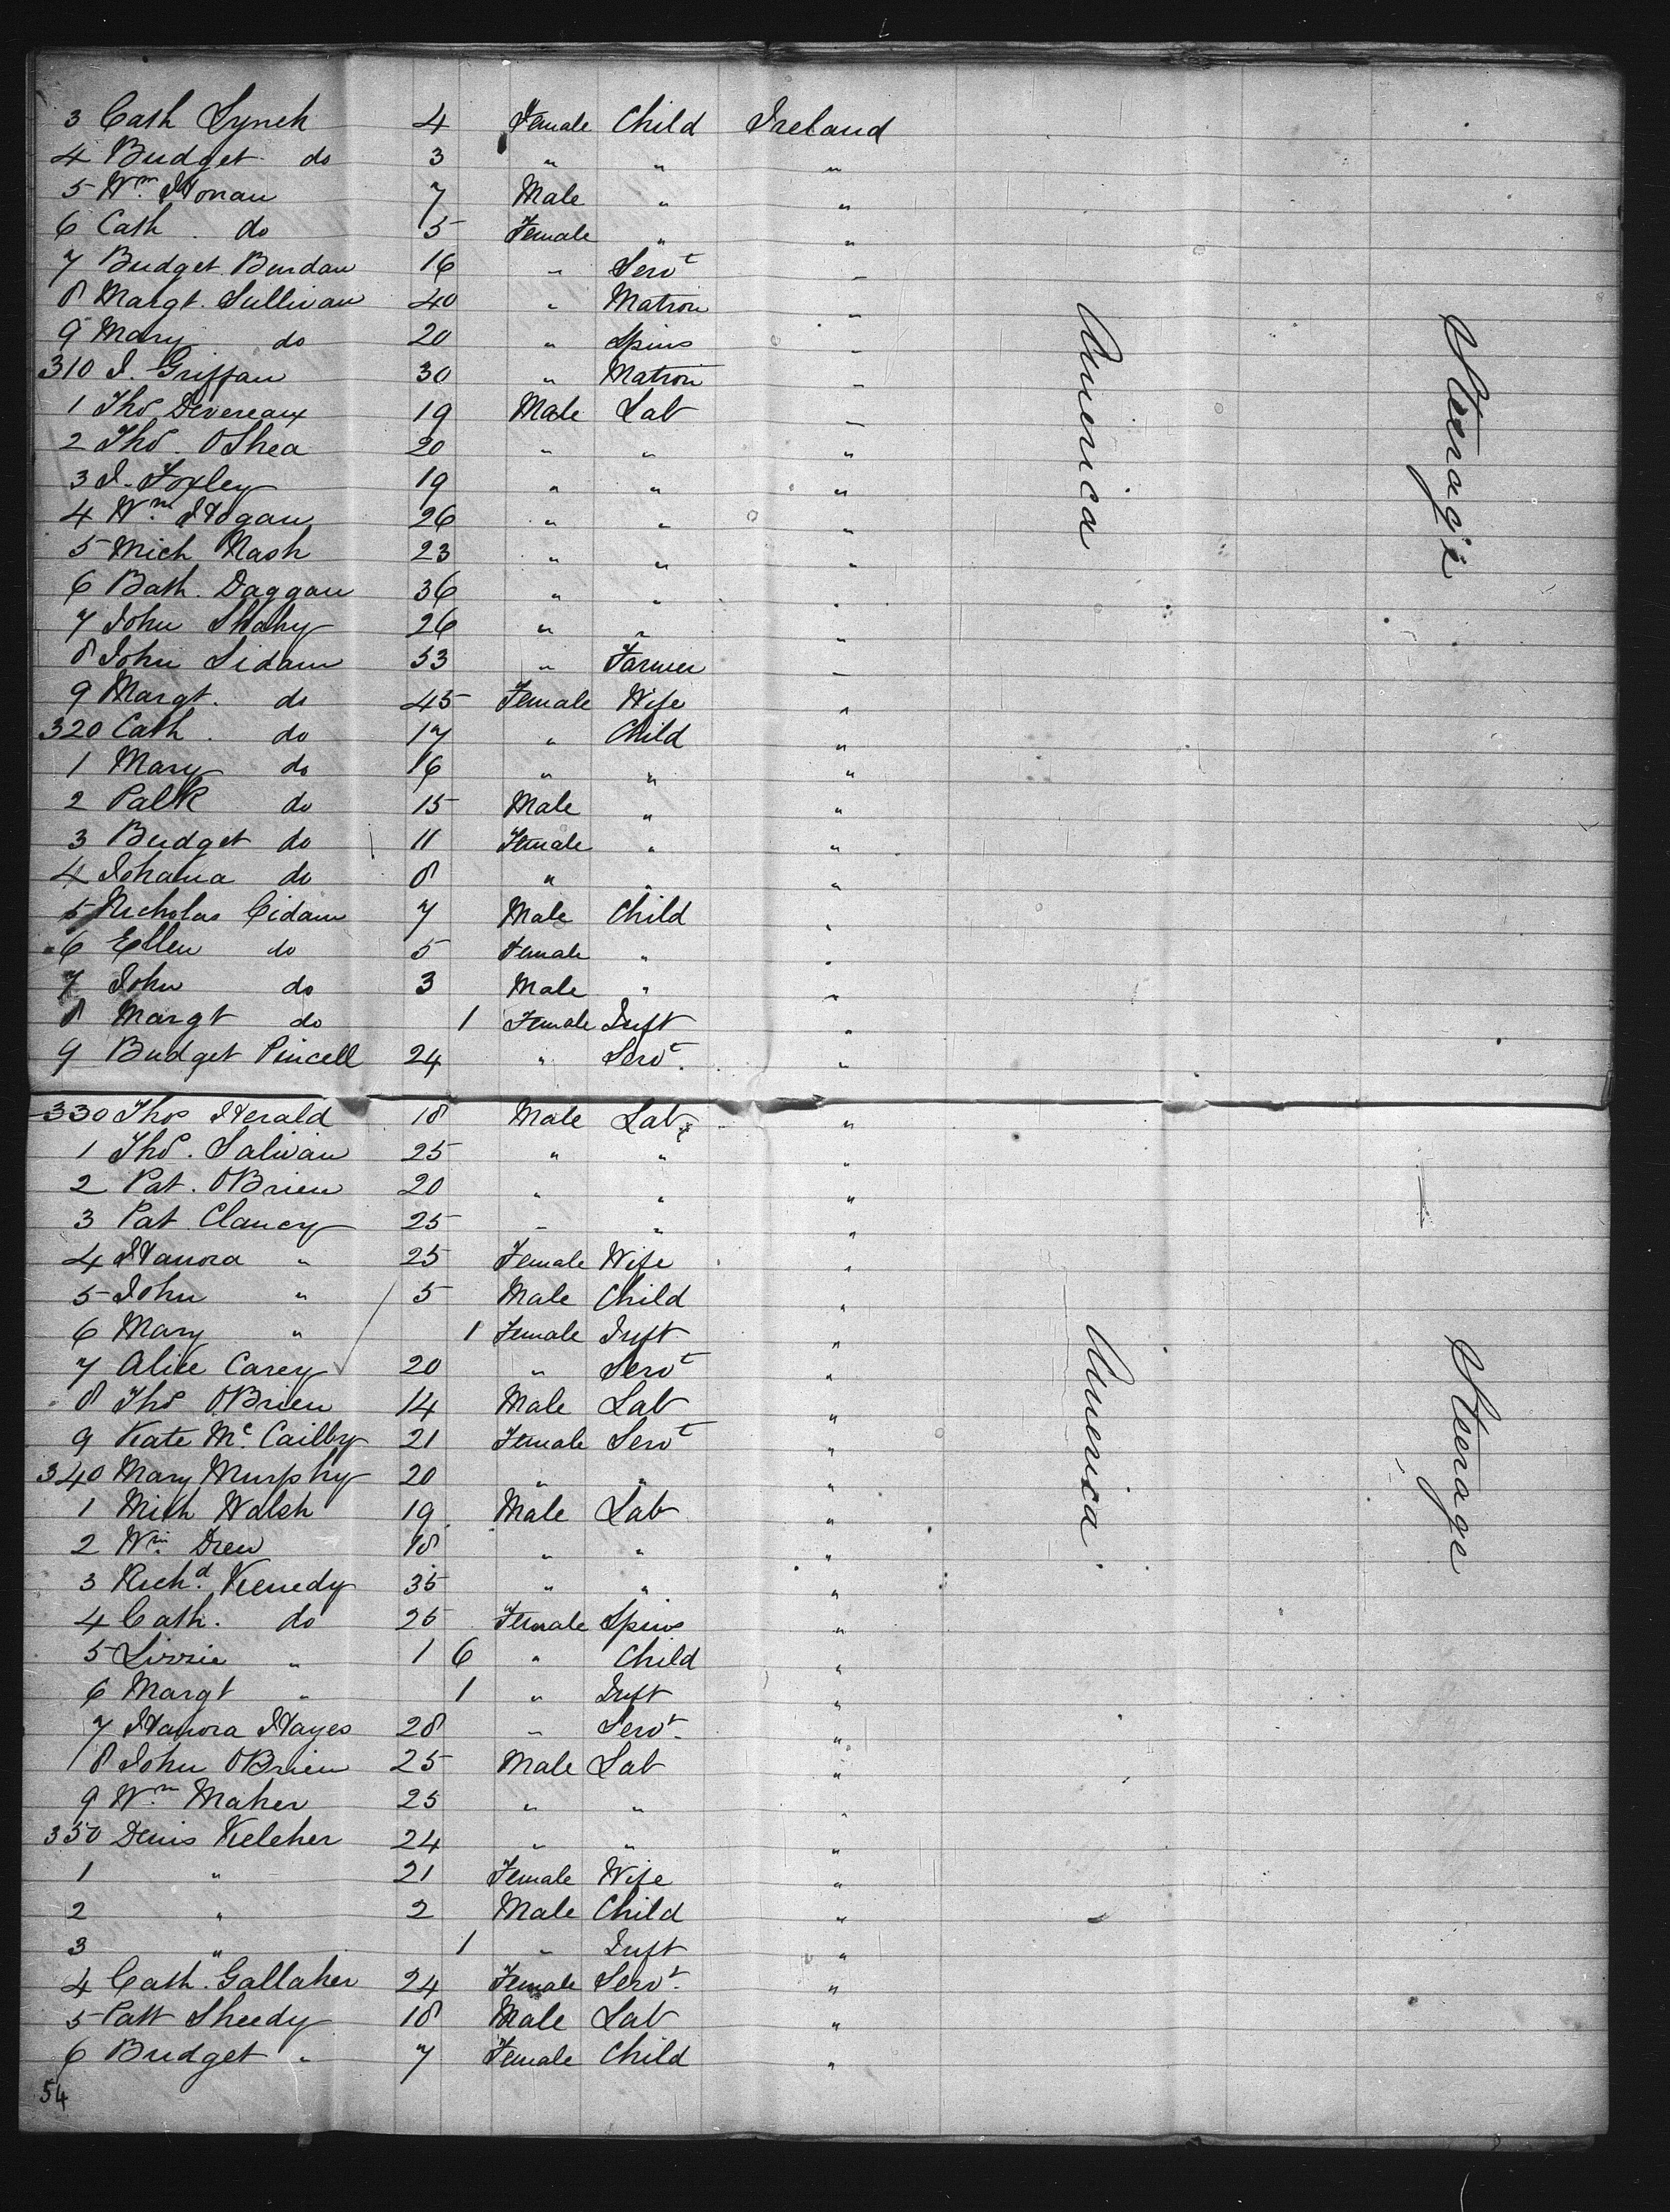 3 Cath Lynch 4 Female Child Ireland
4 Bridget do 3 " " "
5 Wm. Honan 7 Male " "
6 Cath. do 5 Female " "
7 Bridget Burdan 16 " Servt "
8 Margt. Sullivan 40 " Matron "
9 Mary do 20 " Spins "
310 J. Griffan 30 " Matron "
1 Thos Devereaux 19 Male Lab "
2 Thos. OShea 20 " " "
3 J. Foxley 19 " " "
4 Wm. Hogan 26 " " "
5 Mich Nash 23 " " "
6 Bath. Daggan 36 " " "
7 John Shahy 26 " " "
8 John Lidam 53 " Farmer "
9 Margt. do 45 Female Wife "
320 Cath. do 17 " Child "
1 Mary do 16 " " "
2 Patk do 15 Male " "
3 Bridget do 11 Female " "
4 Johana do 8 " " "
5 Nicholas Cidam 7 Male Child "
6 Ellen do 5 Female " "
7 John do 3 Male " "
8 Margt do 1 Female Inft "
9 Bridget Pincell 24 " Servt. "
330 Thos Herald 18 Male Lab "
1 Thos. Salivan 25 " " "
2 Pat. OBrien 20 " " "
3 Pat Clancy 25 " " "
4 Hanora " 25 Female Wife "
5 John " 5 Male Child "
6 Mary " 1 Female Inft "
7 Alice Carey 20 " Servt "
8 Thos OBrien 14 Male Lab "
9 Kate Mc. Cailby 21 Female Servt "
340 Mary Murphy 20 " " "
1 Mich Walsh 19 Male Lab "
2 Wm. Drew 18 " " "
3 Richd. Kenedy 35 " " "
4 Cath. do 25 Female Spins "
5 Lizzie " 1 6 " Child "
6 Margt " 1 " Inft "
7 Hanora Hayes 28 " Servt. "
8 John OBrien 25 Male Lab "
9 Wm. Maher 25 " " "
350 Denis Kelcher 24 " " "
1 " 21 Female Wife "
2 " 2 Male Child "
3 " 1 " Inft "
4 Cath. Gallaher 24 Female Servt. "
5 Patt Sheedy 18 Male Lab "
6 Bridget " 7 Female Child "
54
America
Steerage
America
Steerage